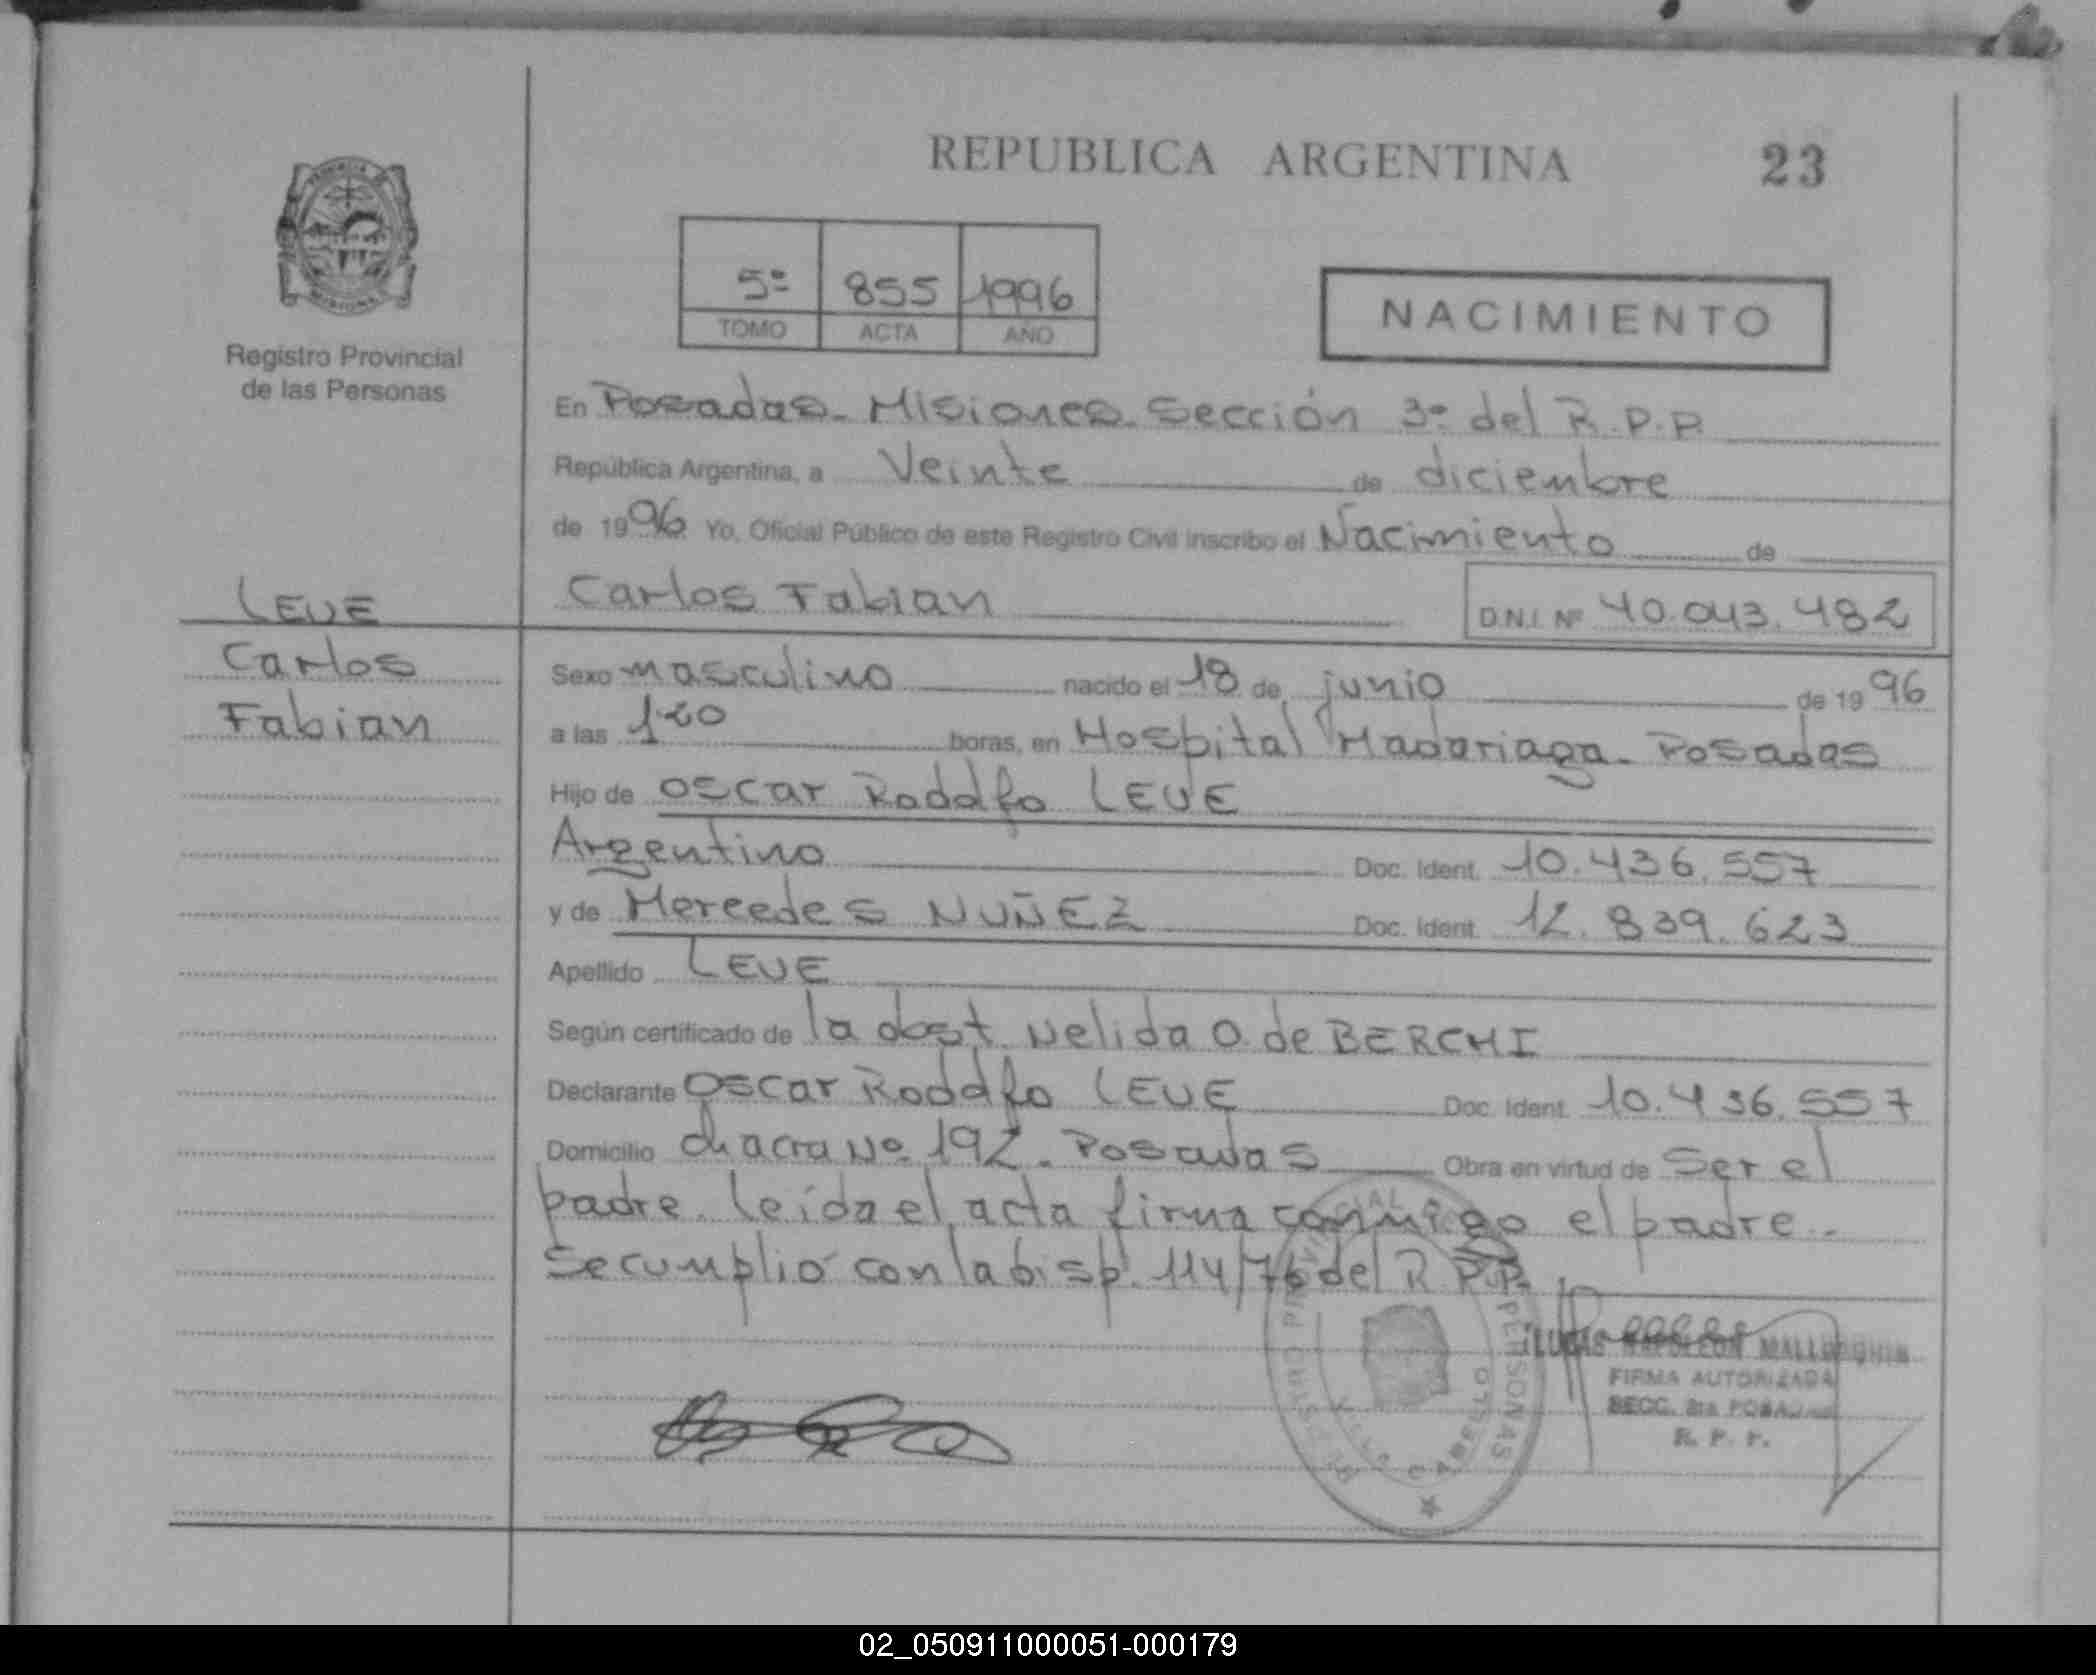 REPUBLICA ARGENTINA 23
5º 855 1996
TOMO ACTA AÑO
NACIMIENTO
Registro Provincial
de las Personas
En Posadas - Misiones. Sección 3º del R.P.P.
República Argentina, a Veinte de diciembre
de 1996 Yo, Oficial Público de este Registro Civil inscribo el Nacimiento de
LEUE
Carlos
Fabian
Carlos Fabian D.N.I. Nº 40.043.482
Sexo masculino nacido el 18 de junio de 1996
a las 1:20 horas, en Hospital Madariaga - Posadas
Hijo de Oscar Rodolfo LEUE
Argentino Doc. Ident. 10.436.557
y de Mercedes NUÑEZ Doc. Ident. 12.839.623
Apellido LEUE
Según certificado de la obst. Nelida O. de BERCHI
Declarante Oscar Rodolfo LEUE Doc. Ident. 10.436.557
Domicilio chacra Nº 192 - Posadas Obra en virtud de Ser el
padre. Leída el acta firma conmigo el padre.-
Se cumplió con la Disp. 114/76 del R.P.P.
LUCAS NAPOLEON
FIRMA AUTORIZADA
SECC. 3ra POSADAS
R. P. P.
02_050911000051-000179